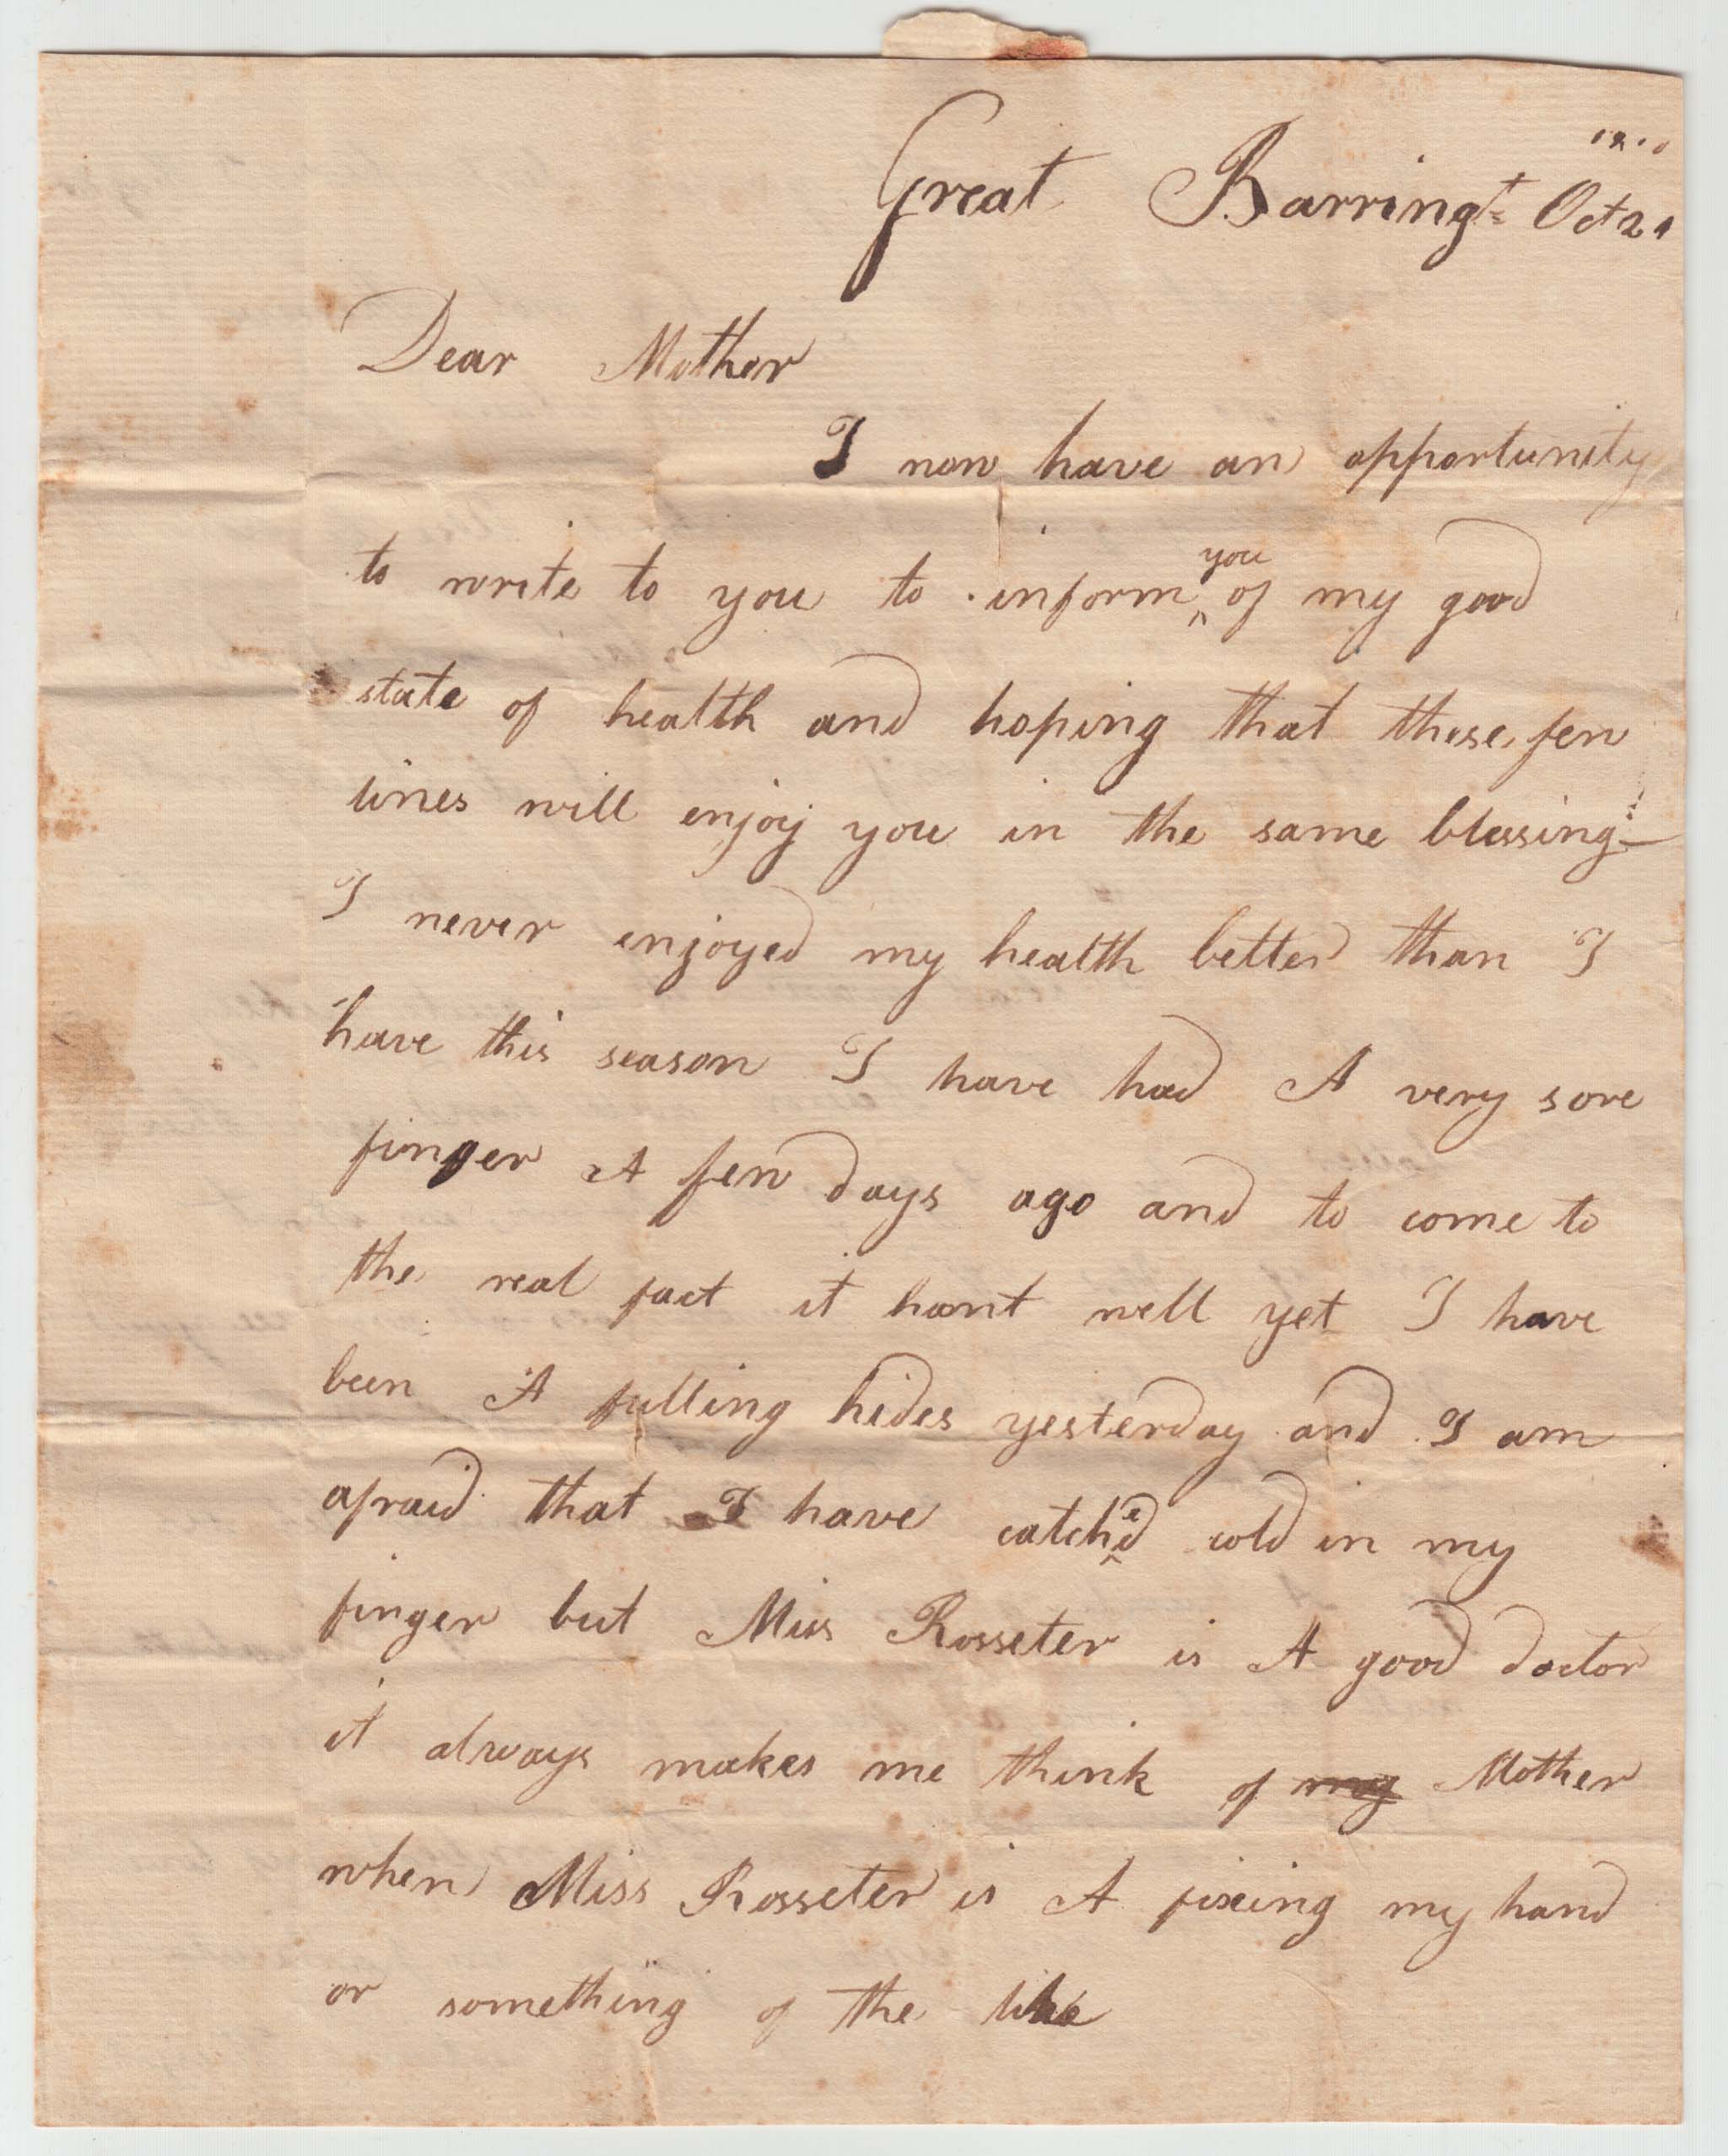 Great Barringt Oct 21
Dear Mother
I now have an opportunity
to write to you to inform you of my good
state of health and hoping that these few
lines will enjoy you in the same blessing
I never enjoyed my health better than I
have this season I have had A very sore
finger A few days ago and to come to
the real fact it hant well yet I have
been A fulling hides yesterday and I am
afraid that I have catched cold in my
finger but Miss Rosseter is A good doctor
it always makes me think of my Mother
when Miss Rosseter is A fixing my hand
or something of the like